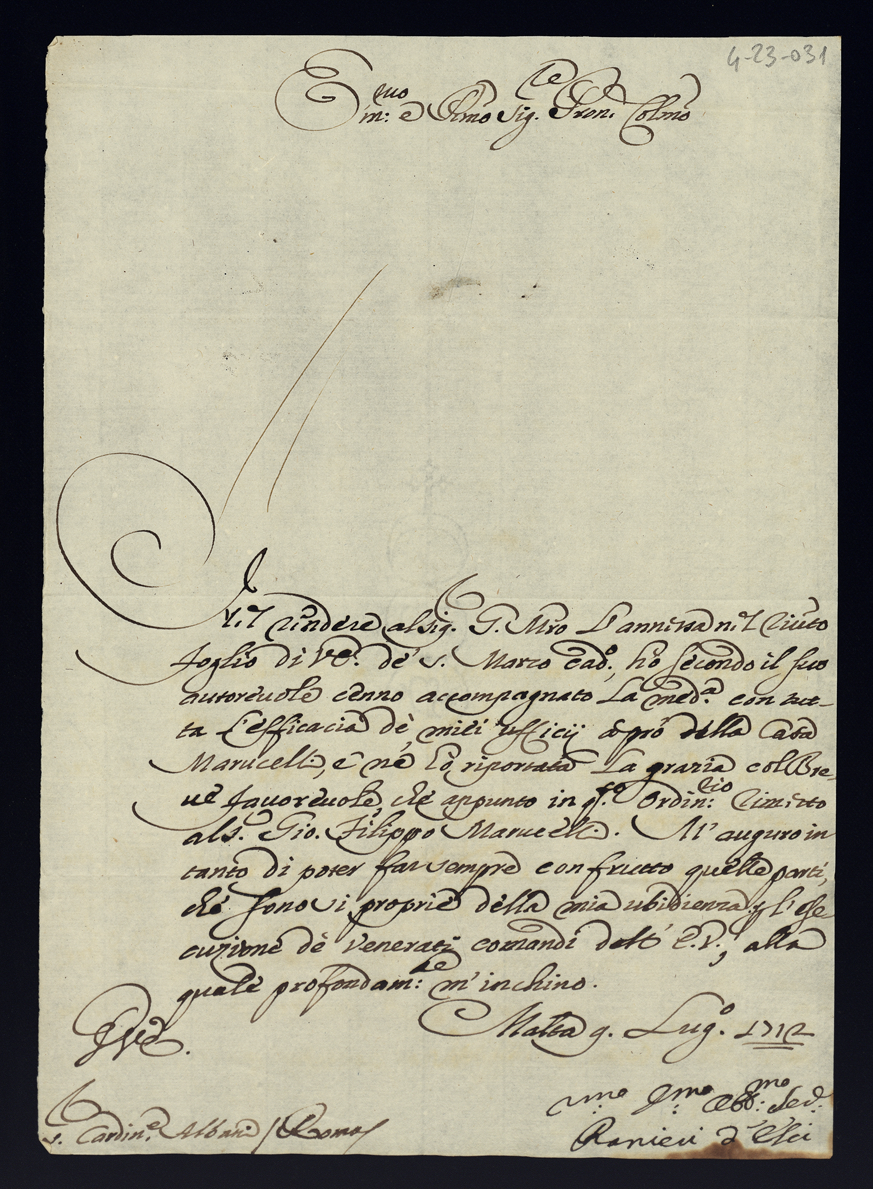 4-23-031
Em:mo e Rmo Sig.re Pron. Colmo
Nel rendere al sig. G. Mro L'annessa nel riuto
foglio di V.E. de' s. Marzo cad.o, hò secondo il suo
autorevole cenno accompagnato La med.a con tut-
ta L'efficacia dè miei ufficij à prò della Casa
Marucelli, e nè hò riportata La grazia col Bre-
ve favorevole, chè appunto in q.to Ordin:rio rimetto
al s. Gio. Filippo Marucelli. M'auguro in
tanto di poter far sempre con frutto quelle parti,
chè sono si proprie della mia ubidienza p l'ese-
cuzione dè venerati comandi dell' E.V., alla
quale profondam:te m'inchino.
Malta 9. Lug.o 1712
S. Cardin.e Albani / Roma /
Um:mo D:mo Obb:mo Ser.
Ranieri d'Elci